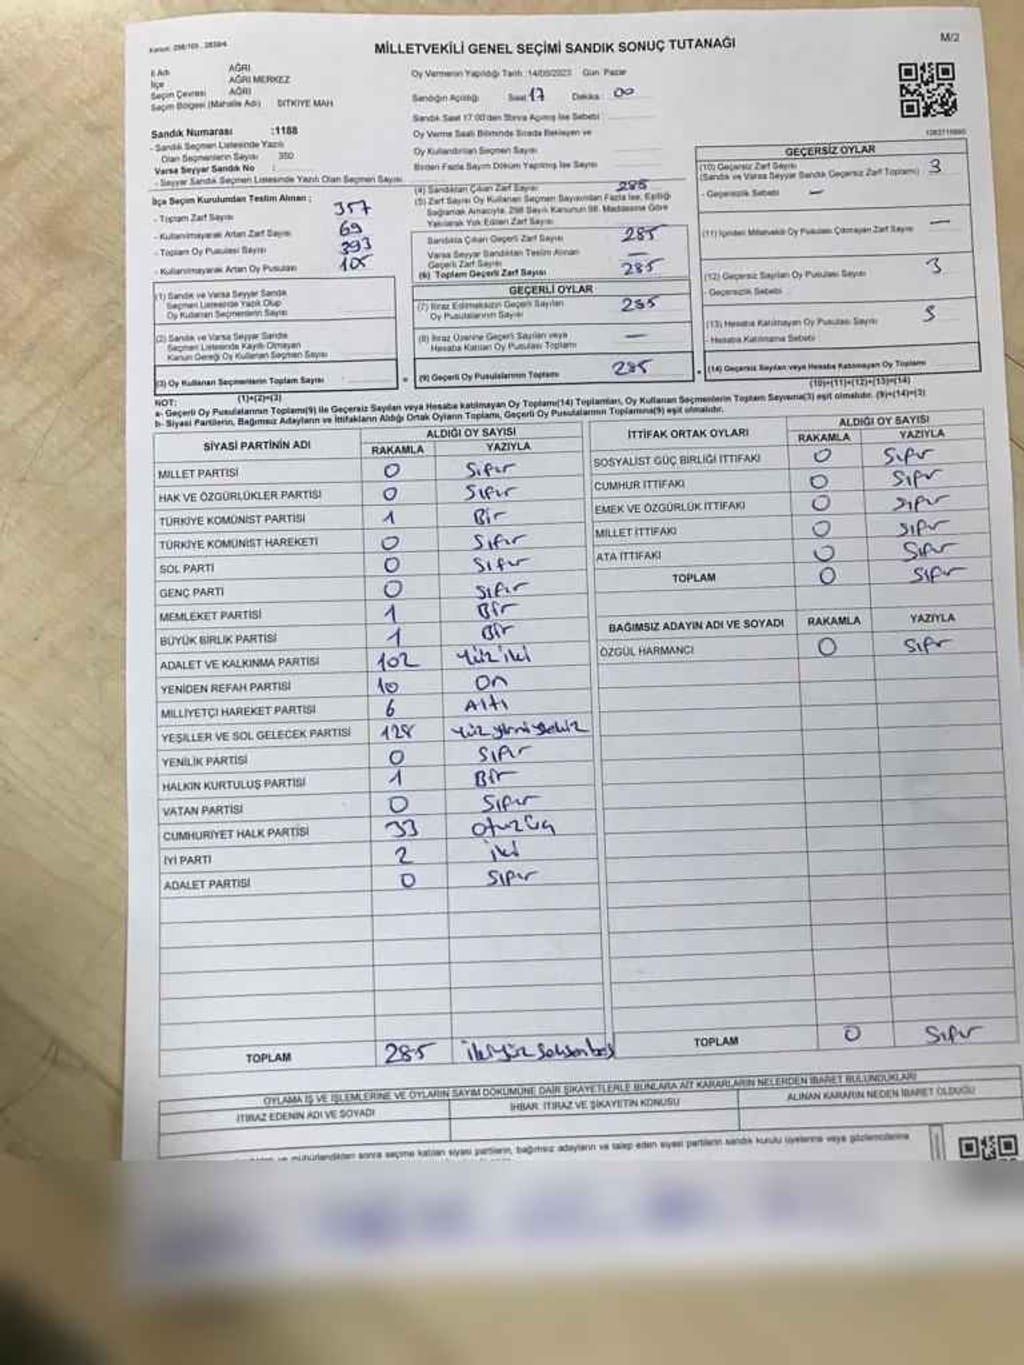 Kanun: 298/105 , 2839/4
M/2
MİLLETVEKİLİ GENEL SEÇİMİ SANDIK SONUÇ TUTANAĞI
İl Adı AĞRI
İlçe AĞRI MERKEZ
Seçim Çevresi AĞRI
Seçim Bölgesi (Mahalle Adı) SITKIYE MAH
Oy Vermenin Yapıldığı Tarih :14/05/2023 Gün :Pazar
Sandığın Açıldığı Saat 17 Dakika : 00
Sandık Saat 17:00'den Sonra Açılmış İse Sebebi :
Oy Verme Saati Bitiminde Sırada Bekleyen ve
Oy Kullandırılan Seçmen Sayısı
Birden Fazla Sayım Döküm Yapılmış İse Sayısı
Sandık Numarası :1188
- Sandık Seçmen Listesinde Yazılı
Olan Seçmenlerin Sayısı 350
Varsa Seyyar Sandık No :
- Seyyar Sandık Seçmen Listesinde Yazılı Olan Seçmen Sayısı
İlçe Seçim Kurulundan Teslim Alınan ;
- Toplam Zarf Sayısı 357
- Kullanılmayarak Artan Zarf Sayısı 69
- Toplam Oy Pusulası Sayısı 393
- Kullanılmayarak Artan Oy Pusulası 105
(1) Sandık ve Varsa Seyyar Sandık
Seçmen Listesinde Yazılı Olup
Oy Kullanan Seçmenlerin Sayısı
(2) Sandık ve Varsa Seyyar Sandık
Seçmen Listesinde Kayıtlı Olmayan
Kanun Gereği Oy Kullanan Seçmen Sayısı
(3) Oy Kullanan Seçmenlerin Toplam Sayısı
(1)+(2)=(3)
(4) Sandıktan Çıkan Zarf Sayısı 285
(5) Zarf Sayısı Oy Kullanan Seçmen Sayısından Fazla İse, Eşitliği
Sağlamak Amacıyla, 298 Sayılı Kanunun 98. Maddesine Göre
Yakılarak Yok Edilen Zarf Sayısı
Sandıkta Çıkan Geçerli Zarf Sayısı 285
Varsa Seyyar Sandıktan Teslim Alınan
Geçerli Zarf Sayısı —
(6) Toplam Geçerli Zarf Sayısı 285
GEÇERLİ OYLAR
(7) İtiraz Edilmeksizin Geçerli Sayılan
Oy Pusulalarının Sayısı 285
(8) İtiraz Üzerine Geçerli Sayılan veya
Hesaba Katılan Oy Pusulası Toplamı —
(9) Geçerli Oy Pusulalarının Toplamı 285
GEÇERSİZ OYLAR
(10) Geçersiz Zarf Sayısı
(Sandık ve Varsa Seyyar Sandık Geçersiz Zarf Toplamı) 3
- Geçersizlik Sebebi —
(11) İçinden Milletvekili Oy Pusulası Çıkmayan Zarf Sayısı —
(12) Geçersiz Sayılan Oy Pusulası Sayısı 3
- Geçersizlik Sebebi
(13) Hesaba Katılmayan Oy Pusulası Sayısı
- Hesaba Katılmama Sebebi
(14) Geçersiz Sayılan veya Hesaba Katılmayan Oy Toplamı
(10)+(11)+(12)+(13)=(14)
NOT:
a- Geçerli Oy Pusulalarının Toplamı(9) ile Geçersiz Sayılan veya Hesaba katılmayan Oy Toplamı(14) Toplamları, Oy Kullanan Seçmenlerin Toplam Sayısına(3) eşit olmalıdır. (9)+(14)=(3)
b- Siyasi Partilerin, Bağımsız Adayların ve İttifakların Aldığı Ortak Oyların Toplamı, Geçerli Oy Pusulalarının Toplamına(9) eşit olmalıdır.
SİYASİ PARTİNİN ADI ALDIĞI OY SAYISI
RAKAMLA YAZIYLA
MİLLET PARTİSİ 0 Sıfır
HAK VE ÖZGÜRLÜKLER PARTİSİ 0 Sıfır
TÜRKİYE KOMÜNİST PARTİSİ 1 Bir
TÜRKİYE KOMÜNİST HAREKETİ 0 Sıfır
SOL PARTİ 0 Sıfır
GENÇ PARTİ 0 Sıfır
MEMLEKET PARTİSİ 1 Bir
BÜYÜK BİRLİK PARTİSİ 1 Bir
ADALET VE KALKINMA PARTİSİ 102 Yüz iki
YENİDEN REFAH PARTİSİ 10 On
MİLLİYETÇİ HAREKET PARTİSİ 6 Altı
YEŞİLLER VE SOL GELECEK PARTİSİ 128 Yüz yirmi sekiz
YENİLİK PARTİSİ 0 Sıfır
HALKIN KURTULUŞ PARTİSİ 1 Bir
VATAN PARTİSİ 0 Sıfır
CUMHURİYET HALK PARTİSİ 33 Otuz üç
İYİ PARTİ 2 İki
ADALET PARTİSİ 0 Sıfır
TOPLAM 285 İkiyüz seksen beş
İTTİFAK ORTAK OYLARI ALDIĞI OY SAYISI
RAKAMLA YAZIYLA
SOSYALİST GÜÇ BİRLİĞİ İTTİFAKI 0 Sıfır
CUMHUR İTTİFAKI 0 Sıfır
EMEK VE ÖZGÜRLÜK İTTİFAKI 0 Sıfır
MİLLET İTTİFAKI 0 Sıfır
ATA İTTİFAKI 0 Sıfır
TOPLAM 0 Sıfır
BAĞIMSIZ ADAYIN ADI VE SOYADI RAKAMLA YAZIYLA
ÖZGÜL HARMANCI 0 Sıfır
TOPLAM 0 Sıfır
OYLAMA İŞ VE İŞLEMLERİNE VE OYLARIN SAYIM DÖKÜMÜNE DAİR ŞİKAYETLERLE BUNLARA AİT KARARLARIN NELERDEN İBARET BULUNDUKLARI
İTİRAZ EDENİN ADI VE SOYADI İHBAR, İTİRAZ VE ŞİKAYETİN KONUSU ALINAN KARARIN NEDEN İBARET OLDUĞU
ve mühürlendikten sonra seçime katılan siyasi partilerin, bağımsız adayların ve talep eden siyasi partilerin sandık kurulu üyelerine veya gözlemcilerine